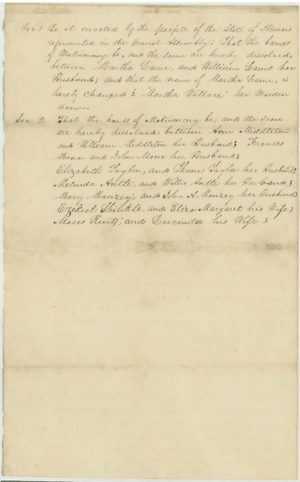 Sec 1 Be it enacted by the people of the State of Illinois
represented in the General Assembly; That the bands
of Matrimony be, and the same are hereby dissolved,
between Martha Lane, and William Lane her
Husband; and that the name of Martha Lane, is
hereby changed to Martha Wallace her Maiden
name.
Sec. 2 That the bands of Matrimony be, and the same
are hereby dissolved between Ann Middleton
and William Middleton her Husband; Frances
and John her Husband;
Elizabeth Taylor, and Thomas Taylor her Husband;
Melinda Antle, and Willis Antle her Husband;
Mary and John A. her Husband
Ezekiel Shinkle and Eliza Margaret his Wife;
Moses and his Wife;